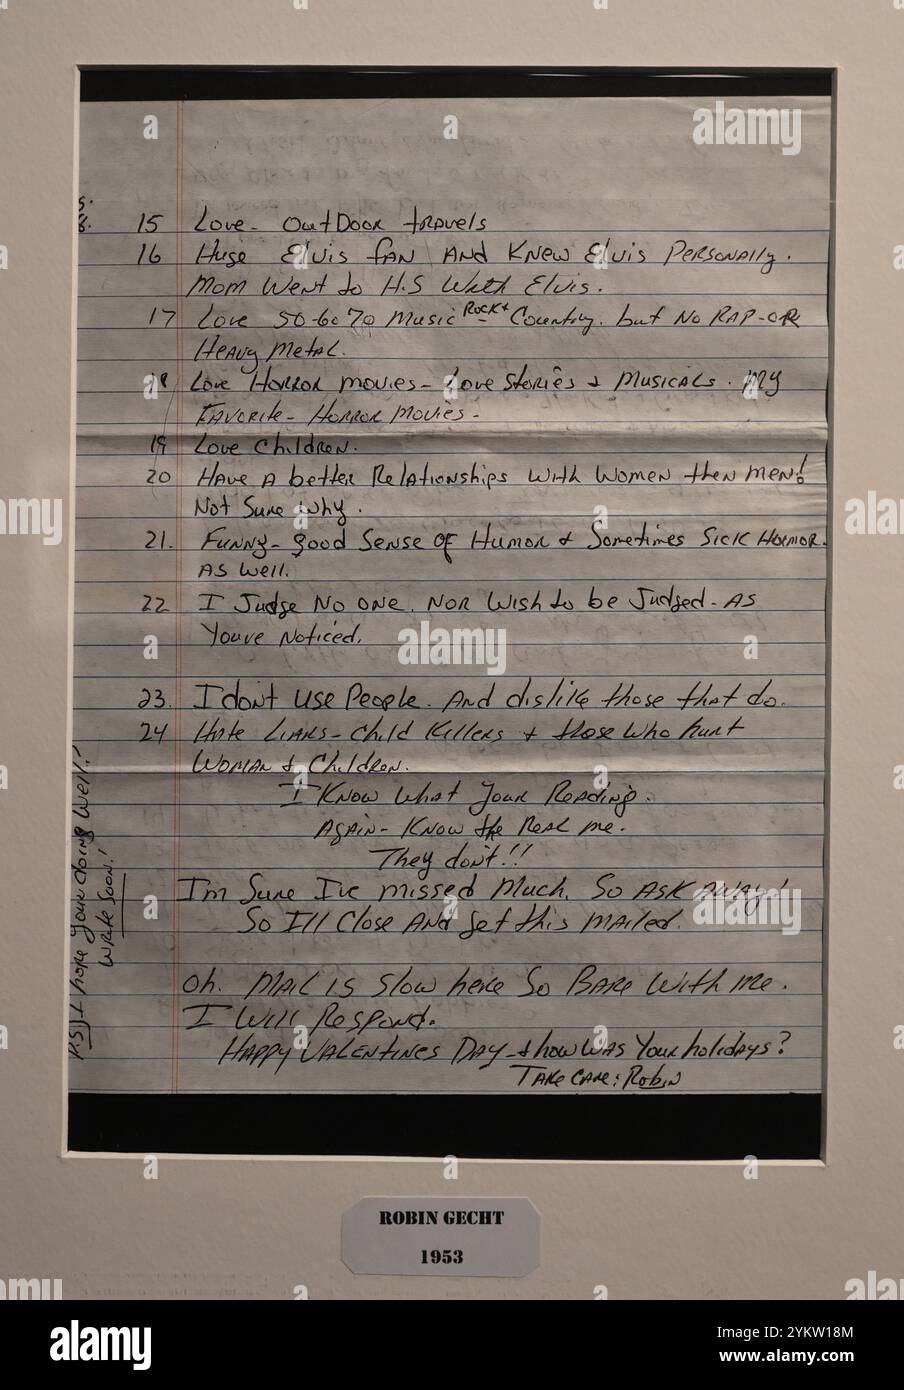 15 Love - OutDoor travels
16 Huge Elvis fan And Knew Elvis Personally.
Mom Went to H.S With Elvis.
17 Love 50-60 70 Music Rock + Country. but No RAP-OR
Heavy Metal.
18 Love Horror movies - Love Stories + Musicals. My
Favorite - Horror Movies -
19 Love Children.
20 Have A better Relationships With Women then Men!
Not Sure why.
21. Funny - good Sense of Humor + Sometimes Sick Hormor.
As Well.
22 I Judge No one. Nor Wish to be Judged - As
Youve Noticed.
23. I dont use People. And dislike those that do.
24 Hate Liars - Child Killers + those Who hurt
Woman + Children.
I Know What Your Reading.
Again - Know the Real me.
They don't!!
I'm Sure I've missed Much. So Ask Away!
So I'll Close And get this mailed.
oh. Mail is Slow here So Bare With me.
I Will Respond.
Happy Valentines Day - + how was Your holidays?
Take Care: Robin
P.S. I hope Your doing Well!
Write Soon!
ROBIN GECHT
1953
alamy
Image ID: 2YKW18M
www.alamy.com